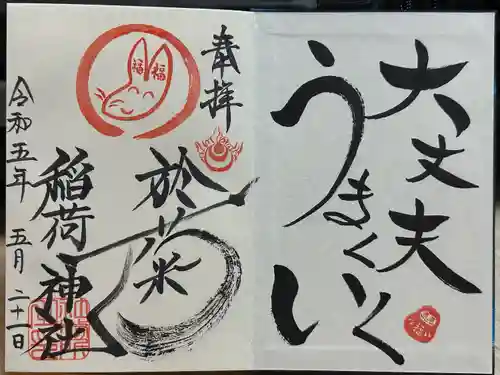 大丈夫
うまくいく
奉拝
福 福
於菊
稲荷神社
令和五年 五月二十一日